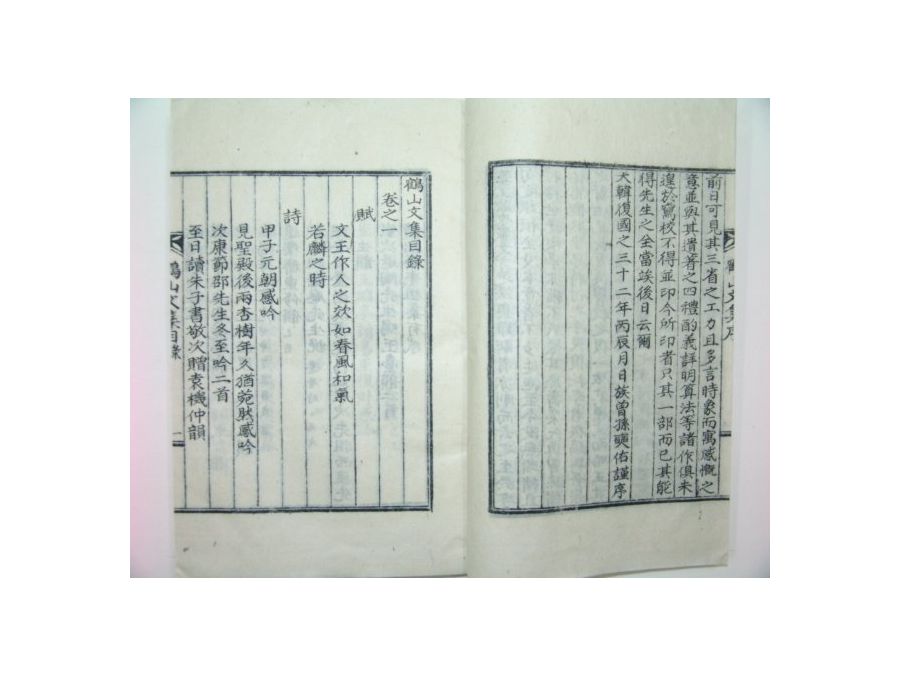 前日可見其三省之工力且多言時象而寓感慨之
意並與其遺著之四禮酌義詳明算法等諸作俱未
遑於寫校不得並印今所印者只其一部而已其能
得先生之全當竢後日云爾
大韓復國之三十二年丙辰月日族曾孫奭佑謹序
鶴山文集序
鶴山文集目錄
卷之一
賦
文王作人之效如春風和氣
若麟之時
詩
甲子元朝感吟
見聖殿後兩杏樹年久猶菀然感吟
次康節邵先生冬至吟二首
至日讀朱子書敬次贈袁機仲韻
鶴山文集目錄
一